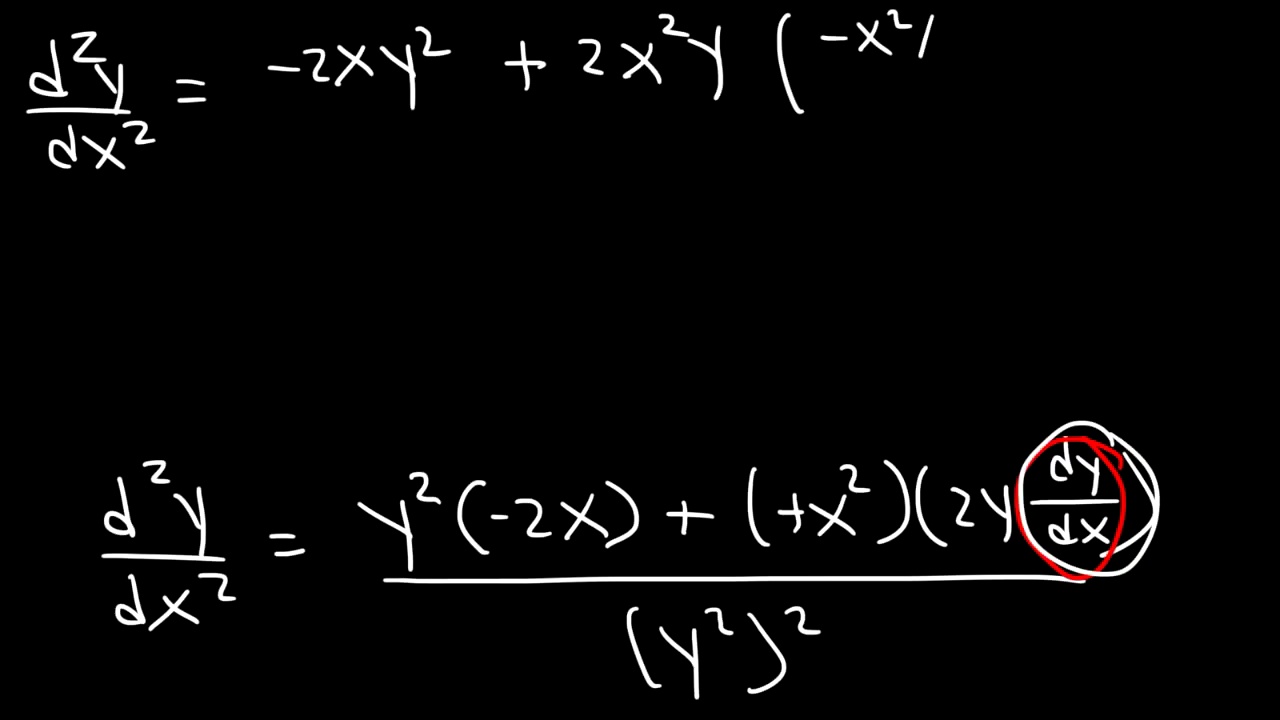 d²y/dx² = -2xy² + 2x²y (-x²/
d²y/dx² = y²(-2x) + (+x²)(2y dy/dx) / (y²)²